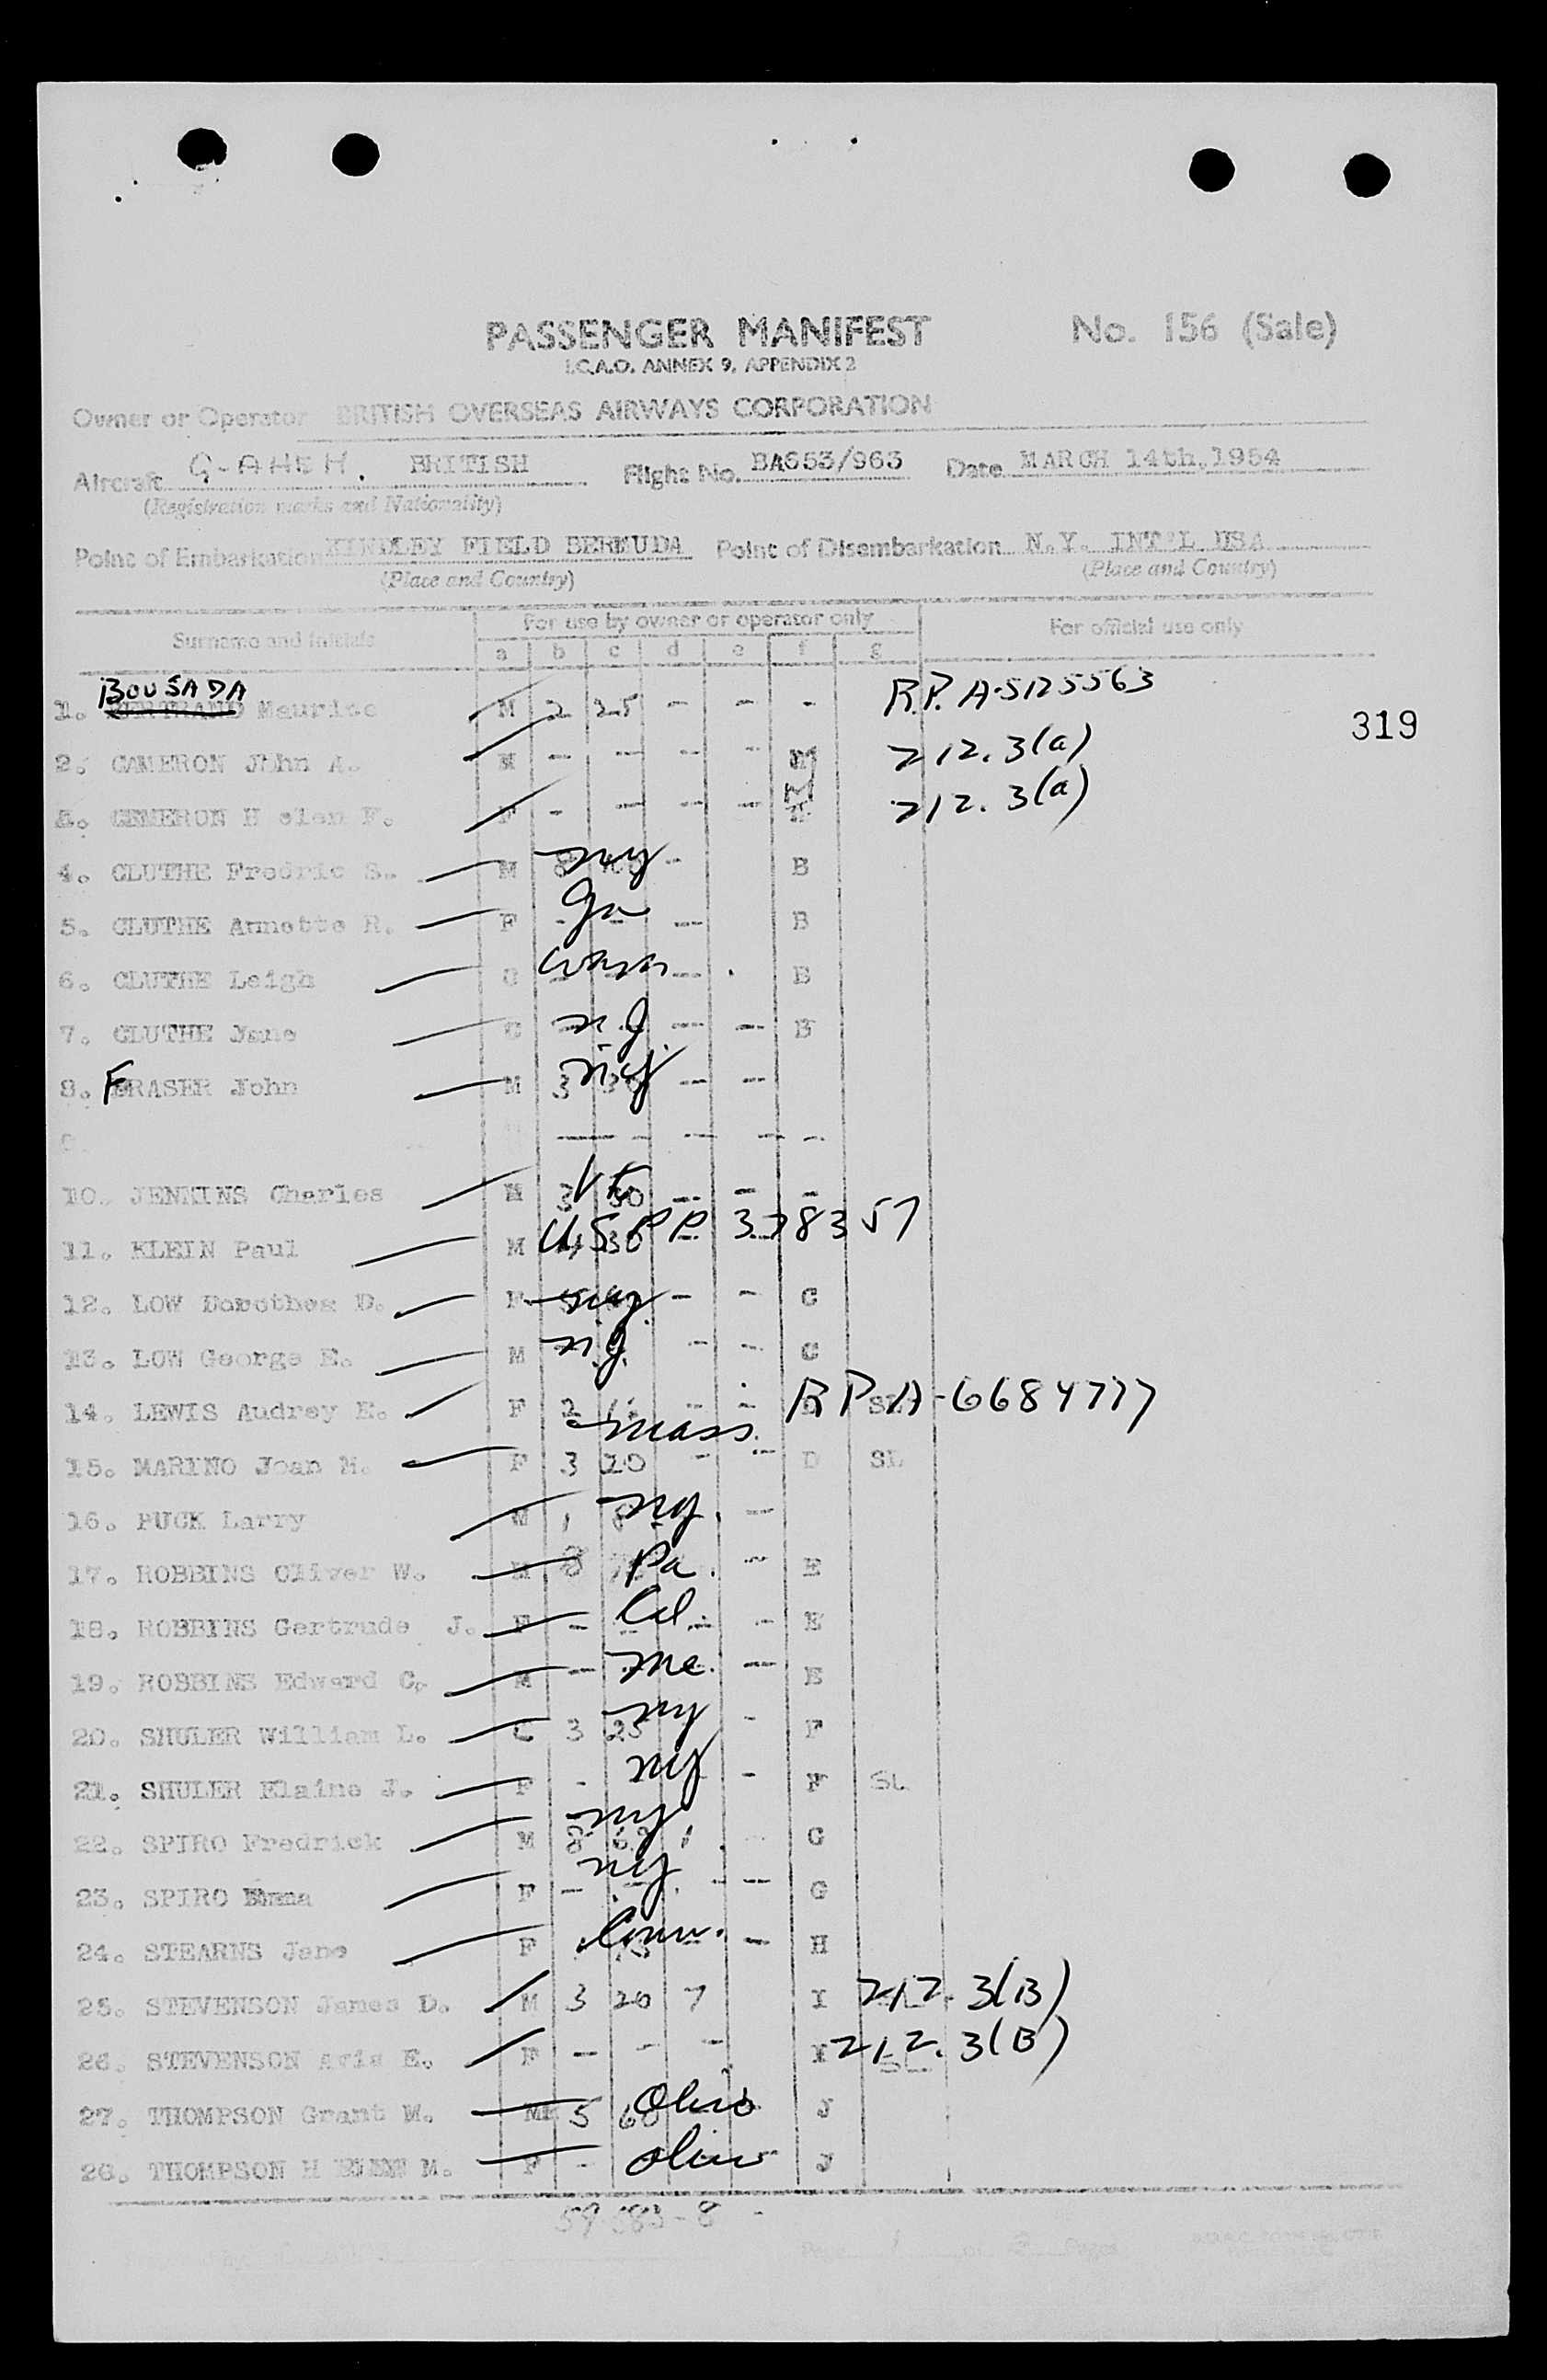 PASSENGER MANIFEST No. 156 (Sale)
I.C.A.O. ANNEX 9, APPENDIX 2
Owner or Operator BRITISH OVERSEAS AIRWAYS CORPORATION
Aircraft G-AHEH. BRITISH Flight No. BA653/963 Date MARCH 14th, 1954
(Registration marks and Nationality)
Point of Embarkation KINDLEY FIELD BERMUDA Point of Disembarkation N.Y. INT'L USA
(Place and Country) (Place and Country)
Surname and initials For use by owner or operator only For official use only
a b c d e f g
BOUSADA
1. BERTRAND Maurice M 2 25 - - - R.P. A-5125563
319
2. CAMERON John A. M - - - - M 212.3(a)
3. CEMERON H elen F. F - - - - M 212.3(a)
4. CLUTHE Fredric S. M 8 ny - B
5. CLUTHE Annette R. F - Ga - B
6. CLUTHE Leigh C wash - B
7. CLUTHE Jane C n.J. - - B
8. FRASER John M 3 ny - -
- - - -
10. JENKINS Charles M 3 Vt 30 - - -
11. KLEIN Paul M USPP 378357
12. LOW Dorothea D. F ny - - C
13. LOW George E. M n.J. - - C
14. LEWIS Audrey E. F 2 - - R P A-6684777
mass.
15. MARINO Joan M. F 3 20 - - D SL
16. PUCK Larry M 1 8 ny. -
17. ROBBINS Oliver W. M 8 Pa. - E
18. ROBBINS Gertrude J. F - Cal - - E
19. ROBBINS Edward C. M - me. - E
20. SHULER William L. C 3 25 ny - F
21. SHULER Elaine J. F - ny - F SL
22. SPIRO Fredrick M 8 ny G
23. SPIRO Emma F - ny - - G
24. STEARNS Jane F Conn. - H
25. STEVENSON James D. M 3 20 7 I 212.3(B)
26. STEVENSON Avis E. F - - - I 212.3(B)
SL
27. THOMPSON Grant W. M 5 60 Ohio J
28. THOMPSON H M. F - Ohio J
59 583-8 -